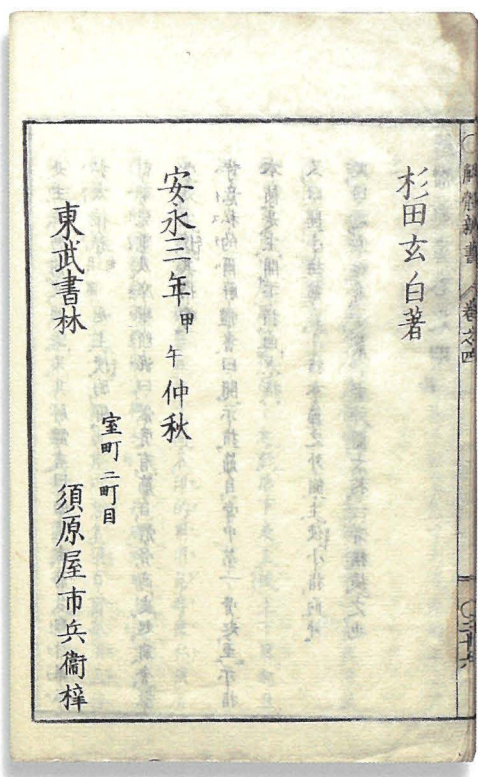 解體新書 巻之四
杉田玄白著
安永三年甲午仲秋
東武書林
室町二町目
須原屋市兵衞梓